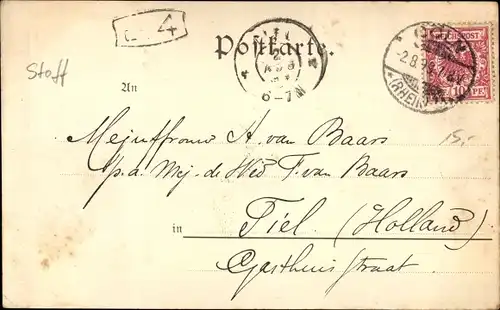 4
Postkarte.
Stoff
6-7N
REICHSPOST
10 PF
2.8.9
(RHEIN)
An
Mejuffrouw A. van Baars
p.a. Mej. de Wed F. van Baars
15,-
in Tiel (Holland)
Gasthuisstraat.